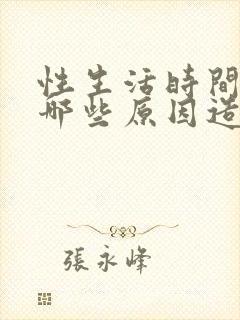 性生活時間
哪些原因造
張永峰